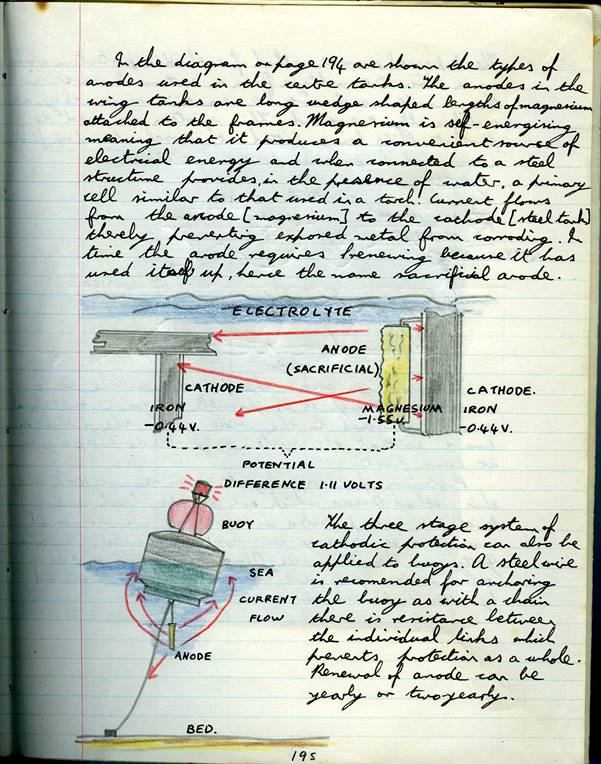 In the diagram on page 194 are shown the types of
anodes used in the centre tanks. The anodes in the
wing tanks are long wedge shaped lengths of magnesium
attached to the frames. Magnesium is self-energising
meaning that it produces a convenient source of
electrical energy and when connected to a steel
structure provides, in the presence of water, a primary
cell similar to that used in a torch. Current flows
from the anode [magnesium] to the cathode [steel tank]
thereby preventing exposed metal from corroding. In
time the anode requires renewing because it has
used itself up, hence the name sacrificial anode.
ELECTROLYTE
ANODE
(SACRIFICIAL)
CATHODE
CATHODE.
IRON
-0.44V.
MAGNESIUM
-1.55V.
IRON
-0.44V.
POTENTIAL
DIFFERENCE 1.11 VOLTS
BUOY
SEA
CURRENT
FLOW
ANODE
BED.
The three stage system of
cathodic protection can also be
applied to buoys. A steel wire
is recomended for anchoring
the buoy as with a chain
there is resistance between
the individual links which
prevents protection as a whole.
Renewal of anode can be
yearly or two yearly.
195